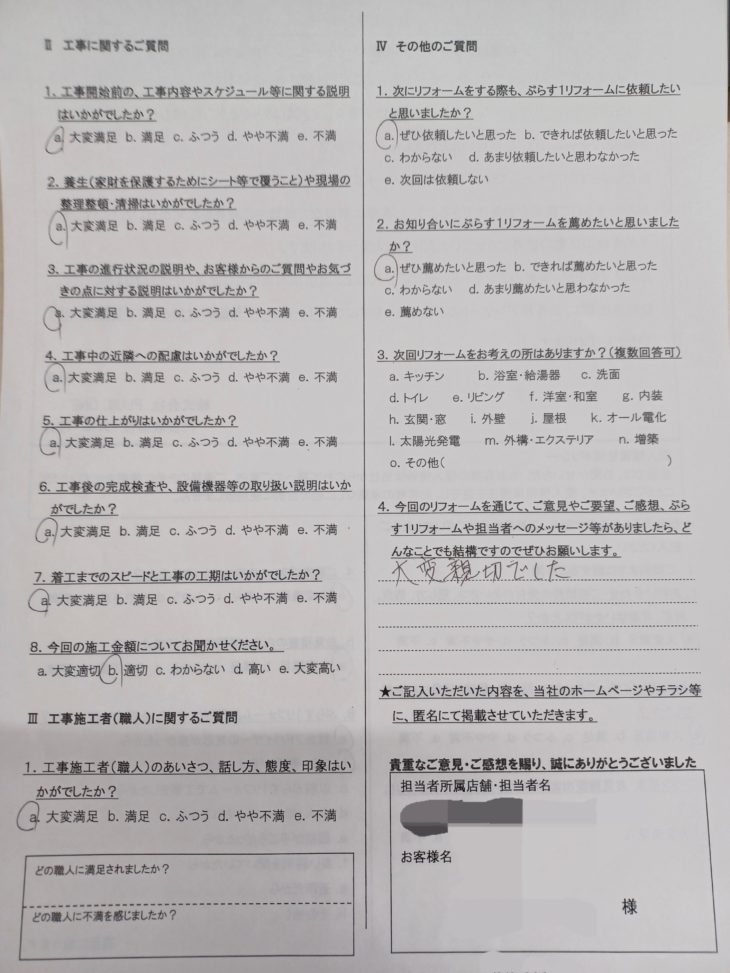 Ⅱ 工事に関するご質問
1. 工事開始前の、工事内容やスケジュール等に関する説明
はいかがでしたか?
a. 大変満足 b. 満足 c. ふつう d. やや不満 e. 不満
2. 養生(家財を保護するためにシート等で覆うこと)や現場の
整理整頓・清掃はいかがでしたか?
a. 大変満足 b. 満足 c. ふつう d. やや不満 e. 不満
3. 工事の進行状況の説明や、お客様からのご質問やお気づ
きの点に対する説明はいかがでしたか?
a. 大変満足 b. 満足 c. ふつう d. やや不満 e. 不満
4. 工事中の近隣への配慮はいかがでしたか?
a. 大変満足 b. 満足 c. ふつう d. やや不満 e. 不満
5. 工事の仕上がりはいかがでしたか?
a. 大変満足 b. 満足 c. ふつう d. やや不満 e. 不満
6. 工事後の完成検査や、設備機器等の取り扱い説明はいか
がでしたか?
a. 大変満足 b. 満足 c. ふつう d. やや不満 e. 不満
7. 着工までのスピードと工事の工期はいかがでしたか?
a. 大変満足 b. 満足 c. ふつう d. やや不満 e. 不満
8. 今回の施工金額についてお聞かせください。
a. 大変適切 b. 適切 c. わからない d. 高い e. 大変高い
Ⅲ 工事施工者(職人)に関するご質問
1. 工事施工者(職人)のあいさつ、話し方、態度、印象はい
かがでしたか?
a. 大変満足 b. 満足 c. ふつう d. やや不満 e. 不満
どの職人に満足されましたか?
どの職人に不満を感じましたか?
Ⅳ その他のご質問
1. 次にリフォームをする際も、ぷらす1リフォームに依頼したい
と思いましたか?
a. ぜひ依頼したいと思った b. できれば依頼したいと思った
c. わからない d. あまり依頼したいと思わなかった
e. 次回は依頼しない
2. お知り合いにぷらす1リフォームを薦めたいと思いました
か?
a. ぜひ薦めたいと思った b. できれば薦めたいと思った
c. わからない d. あまり薦めたいと思わなかった
e. 薦めない
3. 次回リフォームをお考えの所はありますか?(複数回答可)
a. キッチン b. 浴室・給湯器 c. 洗面
d. トイレ e. リビング f. 洋室・和室 g. 内装
h. 玄関・窓 i. 外壁 j. 屋根 k. オール電化
l. 太陽光発電 m. 外構・エクステリア n. 増築
o. その他( )
4. 今回のリフォームを通じて、ご意見やご要望、ご感想、ぷら
す1リフォームや担当者へのメッセージ等がありましたら、ど
んなことでも結構ですのでぜひお願いします。
大変親切でした
★ご記入いただいた内容を、当社のホームページやチラシ等
に、匿名にて掲載させていただきます。
貴重なご意見・ご感想を賜り、誠にありがとうございました
担当者所属店舗・担当者名
お客様名
様